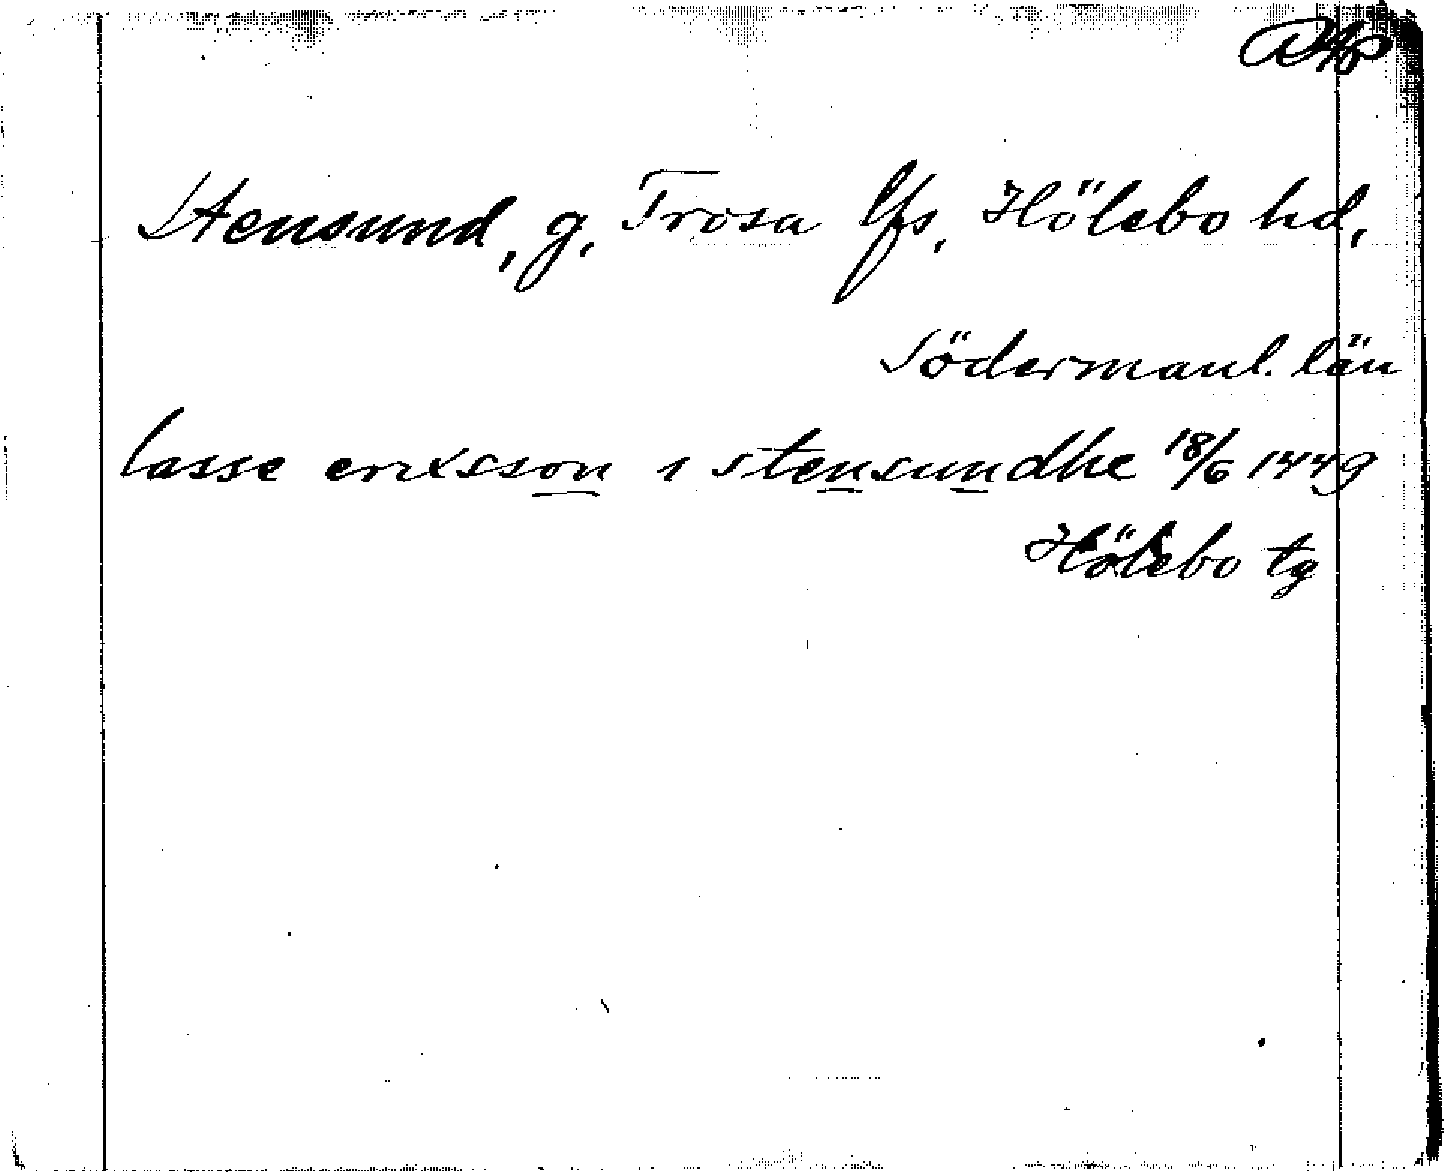 Stensund, g, Trosa lfs, Hölebo hd,
Södermanl. län
lasse erixsson i stensundhe 18/6 1449
Hölebo tg